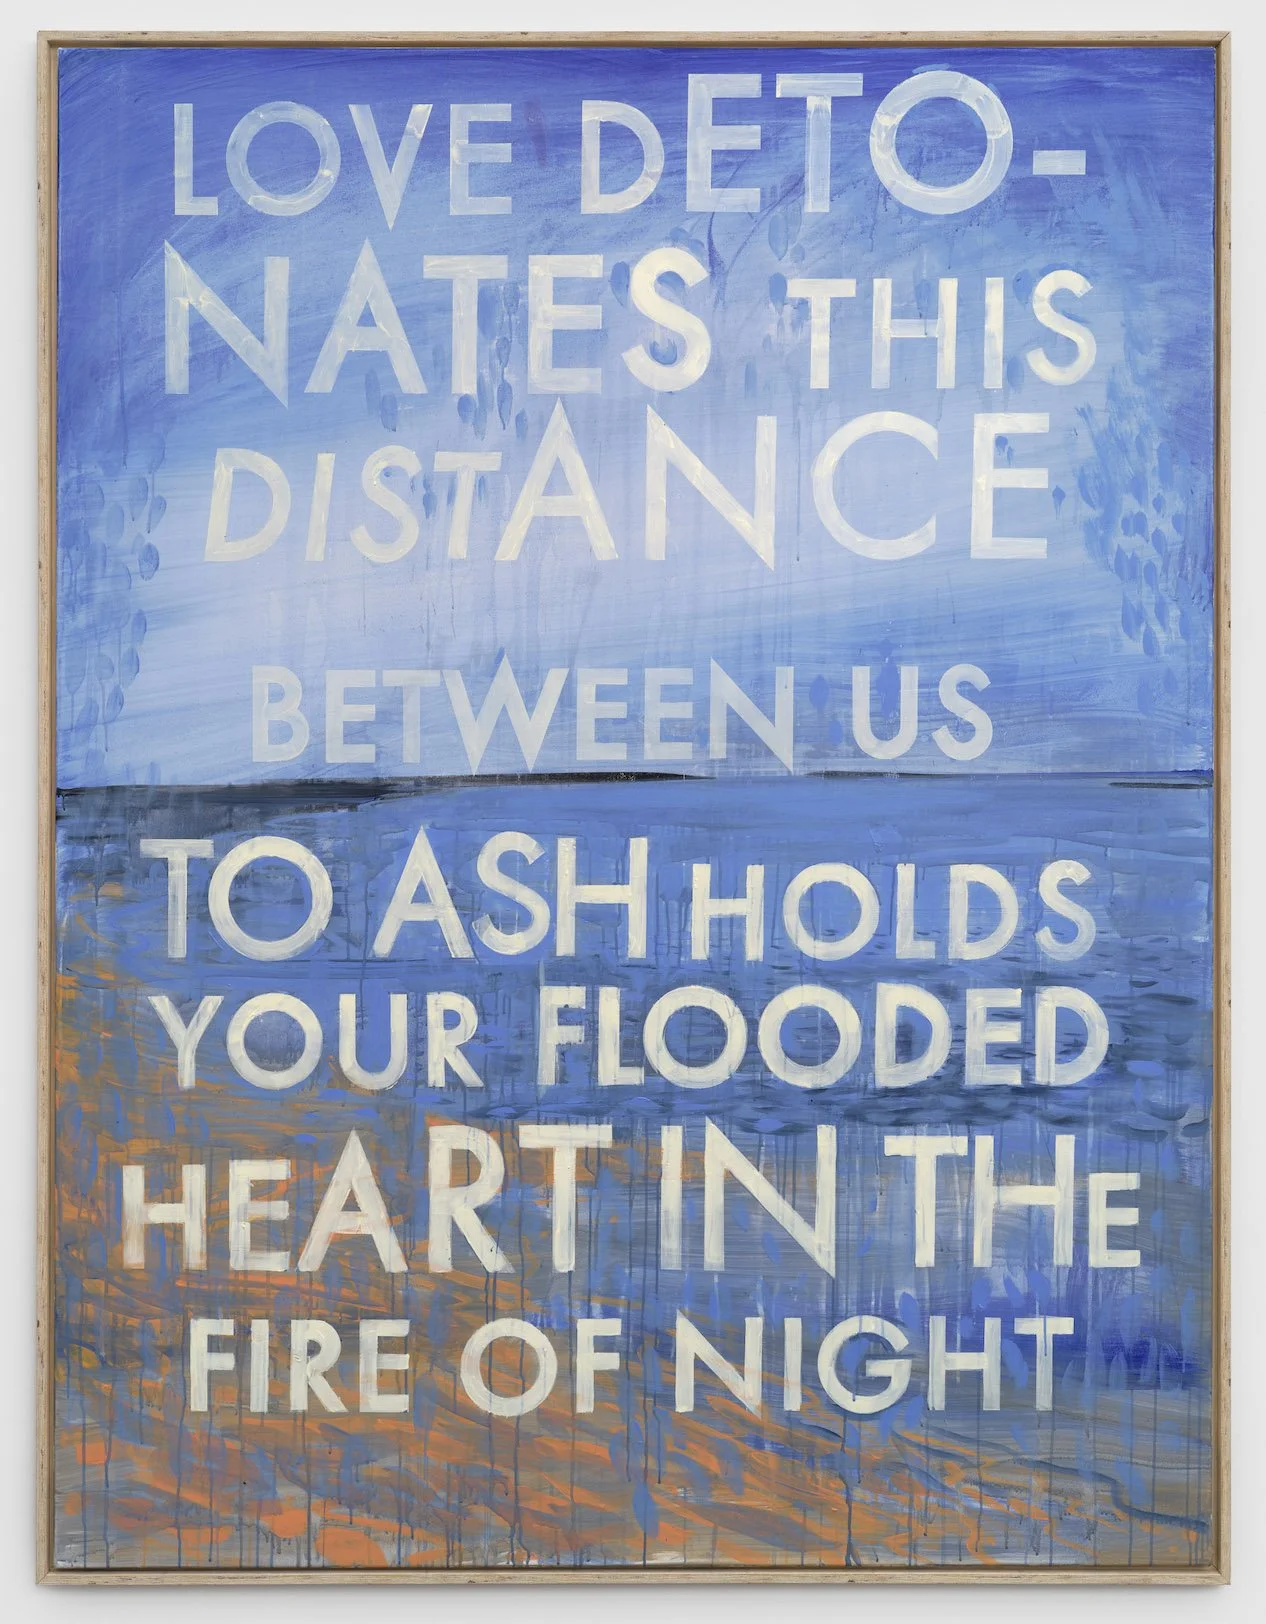 LOVE DETO-
NATES THIS
DISTANCE
BETWEEN US
TO ASH HOLDS
YOUR FLOODED
HEART IN THE
FIRE OF NIGHT